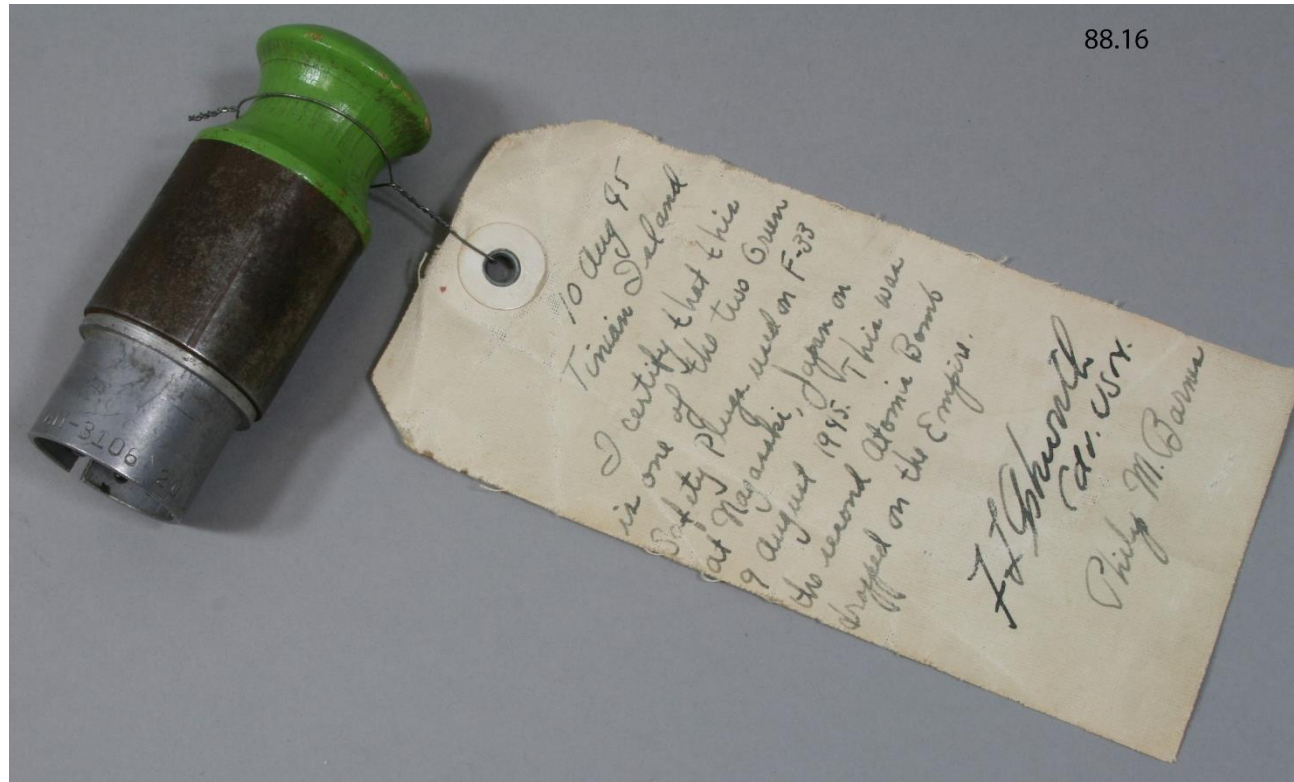 88.16
10 Aug 45
Tinian Island
I certify that this
is one of the two Green
Safety Plugs used on F-33
at Nagasaki, Japan on
9 August 1945. This was
the second Atomic Bomb
dropped on the Empire.
F L Ashworth
Cdr. USN.
Philip M. Barnes
-3106